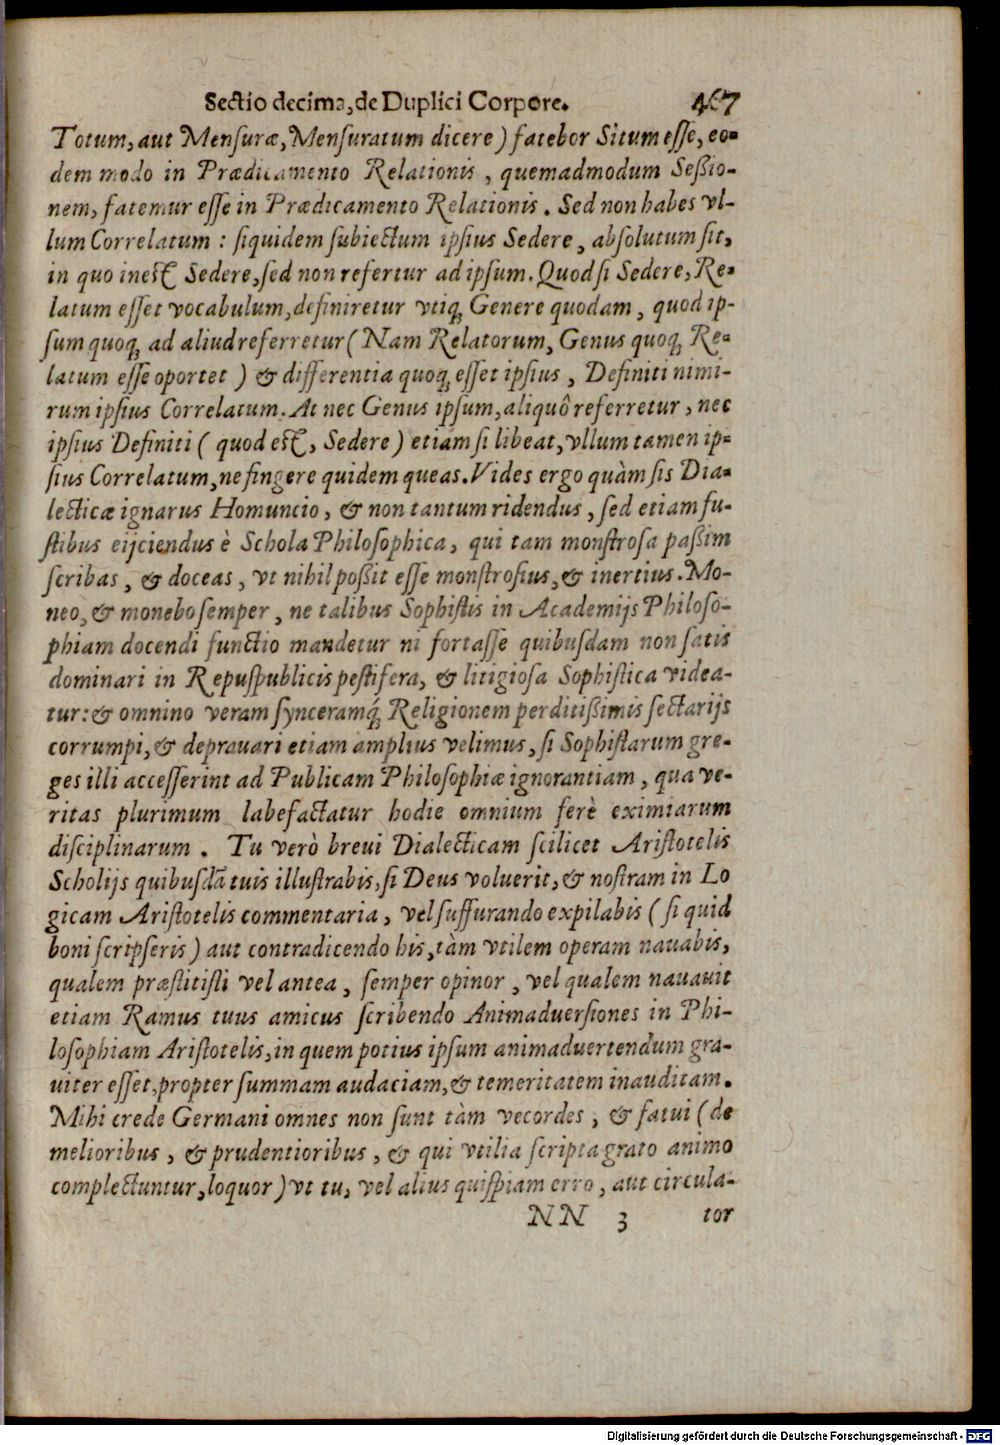 Sectio decima, de Duplici Corpore. 467
Totum, aut Mensuræ, Mensuratum dicere) fatebor Situm esse, eo-
dem modo in Prædicamento Relationis, quemadmodum Seßio-
nem, fatemur esse in Prædicamento Relationis. Sed non habes vl-
lum Correlatum: siquidem subiectum ipsius Sedere, absolutum sit,
in quo inest Sedere, sed non refertur ad ipsum. Quod si Sedere, Re-
latum esset vocabulum, definiretur vtiq; Genere quodam, quod ip-
sum quoq; ad aliud referretur (Nam Relatorum, Genus quoq; Re-
latum esse oportet) & differentia quoq; esset ipsius, Definiti nimi-
rum ipsius Correlatum. At nec Genus ipsum, aliquô referretur, nec
ipsius Definiti (quod est, Sedere) etiam si libeat, vllum tamen ip-
sius Correlatum, ne fingere quidem queas. Vides ergo quàm sis Dia-
lecticæ ignarus Homuncio, & non tantum ridendus, sed etiam fu-
stibus eijciendus è Schola Philosophica, qui tam monstrosa paßim
scribas, & doceas, vt nihil poßit esse monstrosius, & inertius. Mo-
neo, & monebo semper, ne talibus Sophistis in Academijs Philoso-
phiam docendi functio mandetur ni fortasse quibusdam non satis
dominari in Repuspublicis pestifera, & litigiosa Sophistica videa-
tur: & omnino veram synceramq́; Religionem perditißimis sectarijs
corrumpi, & deprauari etiam amplius velimus, si Sophistarum gre-
ges illi accesserint ad Publicam Philosophiæ ignorantiam, qua ve-
ritas plurimum labefactatur hodie omnium ferè eximiarum
disciplinarum. Tu verò breui Dialecticam scilicet Aristotelis
Scholijs quibusdā tuis illustrabis, si Deus voluerit, & nostram in Lo
gicam Aristotelis commentaria, vel suffurando expilabis (si quid
boni scripseris) aut contradicendo his, tàm vtilem operam nauabis,
qualem præstitisti vel antea, semper opinor, vel qualem nauauit
etiam Ramus tuus amicus scribendo Animaduersiones in Phi-
losophiam Aristotelis, in quem potius ipsum animaduertendum gra-
uiter esset, propter summam audaciam, & temeritatem inauditam.
Mihi crede Germani omnes non sunt tàm vecordes, & fatui (de
melioribus, & prudentioribus, & qui vtilia scripta grato animo
complectuntur, loquor) vt tu, vel alius quispiam erro, aut circula-
NN 3 tor
Digitalisierung gefördert durch die Deutsche Forschungsgemeinschaft - DFG